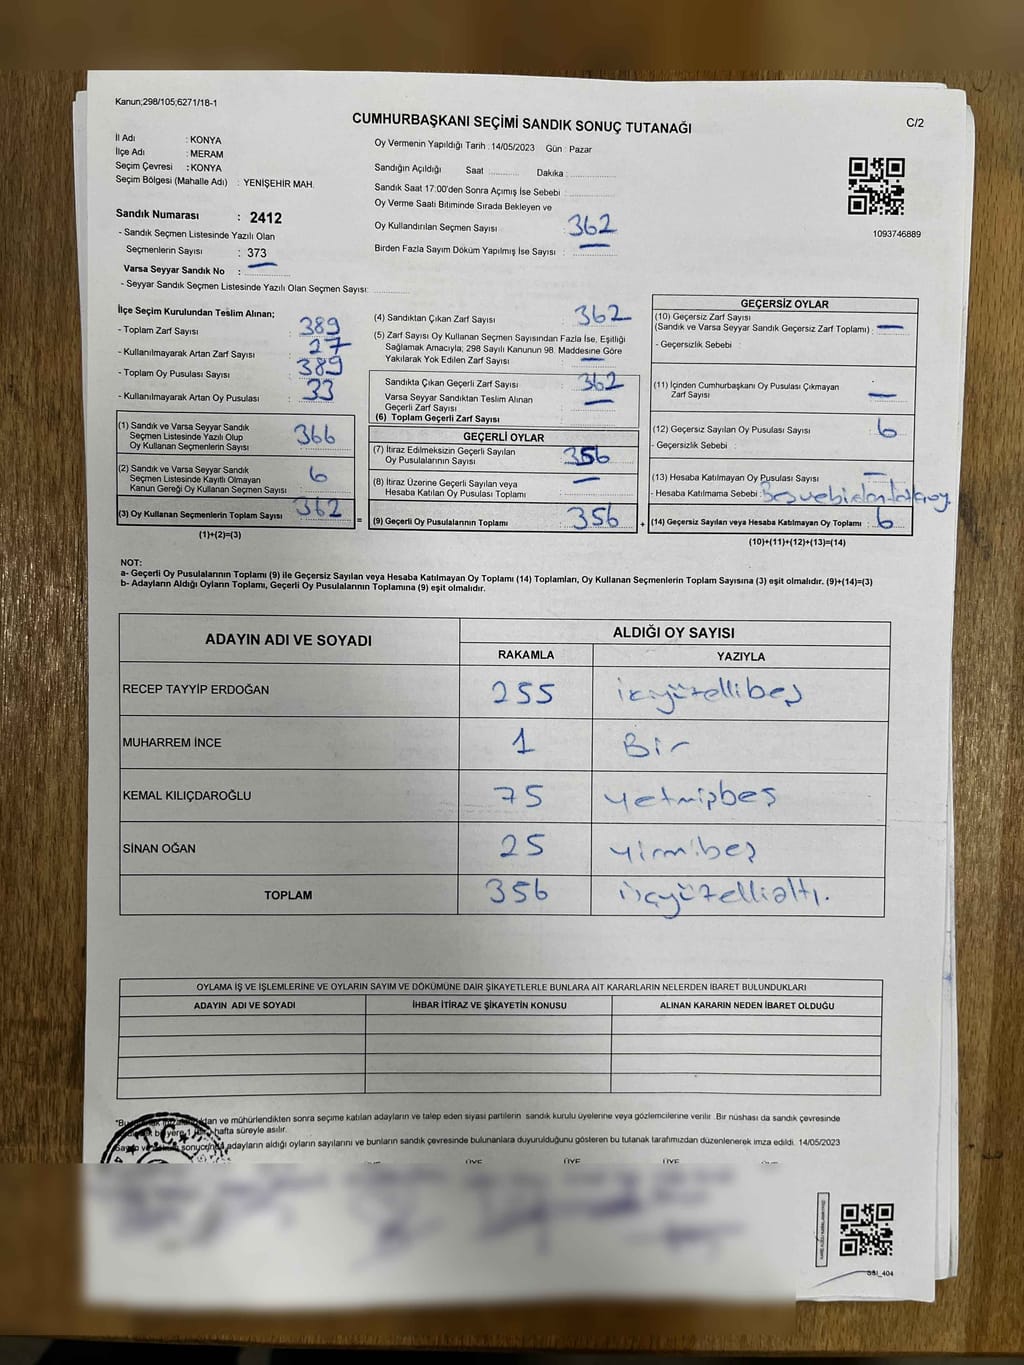 Kanun;298/105;6271/18-1
CUMHURBAŞKANI SEÇİMİ SANDIK SONUÇ TUTANAĞI
C/2
İl Adı : KONYA
İlçe Adı : MERAM
Seçim Çevresi : KONYA
Seçim Bölgesi (Mahalle Adı) : YENİŞEHİR MAH.
Sandık Numarası : 2412
- Sandık Seçmen Listesinde Yazılı Olan
Seçmenlerin Sayısı : 373
Varsa Seyyar Sandık No :
- Seyyar Sandık Seçmen Listesinde Yazılı Olan Seçmen Sayısı:
Oy Vermenin Yapıldığı Tarih : 14/05/2023 Gün : Pazar
Sandığın Açıldığı Saat Dakika :
Sandık Saat 17:00'den Sonra Açımış İse Sebebi :
Oy Verme Saati Bitiminde Sırada Bekleyen ve
Oy Kullandırılan Seçmen Sayısı : 362
Birden Fazla Sayım Döküm Yapılmış İse Sayısı :
1093746889
İlçe Seçim Kurulundan Teslim Alınan;
- Toplam Zarf Sayısı : 389
- Kullanılmayarak Artan Zarf Sayısı : 27
- Toplam Oy Pusulası Sayısı : 389
- Kullanılmayarak Artan Oy Pusulası : 33
(1) Sandık ve Varsa Seyyar Sandık
Seçmen Listesinde Yazılı Olup
Oy Kullanan Seçmenlerin Sayısı : 366
(2) Sandık ve Varsa Seyyar Sandık
Seçmen Listesinde Kayıtlı Olmayan
Kanun Gereği Oy Kullanan Seçmen Sayısı : 6
(3) Oy Kullanan Seçmenlerin Toplam Sayısı : 362
(1)+(2)=(3)
(4) Sandıktan Çıkan Zarf Sayısı : 362
(5) Zarf Sayısı Oy Kullanan Seçmen Sayısından Fazla İse, Eşitliği
Sağlamak Amacıyla; 298 Sayılı Kanunun 98. Maddesine Göre
Yakılarak Yok Edilen Zarf Sayısı : —
Sandıkta Çıkan Geçerli Zarf Sayısı : 362
Varsa Seyyar Sandıktan Teslim Alınan
Geçerli Zarf Sayısı : —
(6) Toplam Geçerli Zarf Sayısı :
GEÇERLİ OYLAR
(7) İtiraz Edilmeksizin Geçerli Sayılan
Oy Pusulalarının Sayısı : 356
(8) İtiraz Üzerine Geçerli Sayılan veya
Hesaba Katılan Oy Pusulası Toplamı : —
= (9) Geçerli Oy Pusulalarının Toplamı : 356
GEÇERSİZ OYLAR
(10) Geçersiz Zarf Sayısı
(Sandık ve Varsa Seyyar Sandık Geçersiz Zarf Toplamı) : —
- Geçersizlik Sebebi :
(11) İçinden Cumhurbaşkanı Oy Pusulası Çıkmayan
Zarf Sayısı : —
(12) Geçersiz Sayılan Oy Pusulası Sayısı : 6
- Geçersizlik Sebebi :
(13) Hesaba Katılmayan Oy Pusulası Sayısı : —
- Hesaba Katılmama Sebebi :
+ (14) Geçersiz Sayılan veya Hesaba Katılmayan Oy Toplamı : 6
(10)+(11)+(12)+(13)=(14)
NOT:
a- Geçerli Oy Pusulalarının Toplamı (9) ile Geçersiz Sayılan veya Hesaba Katılmayan Oy Toplamı (14) Toplamları, Oy Kullanan Seçmenlerin Toplam Sayısına (3) eşit olmalıdır. (9)+(14)=(3)
b- Adayların Aldığı Oyların Toplamı, Geçerli Oy Pusulalarının Toplamına (9) eşit olmalıdır.
ADAYIN ADI VE SOYADI ALDIĞI OY SAYISI
RAKAMLA YAZIYLA
RECEP TAYYİP ERDOĞAN 255 ikiyüzellibeş
MUHARREM İNCE 1 Bir
KEMAL KILIÇDAROĞLU 75 yetmişbeş
SİNAN OĞAN 25 yirmibeş
TOPLAM 356 üçyüzellialtı.
OYLAMA İŞ VE İŞLEMLERİNE VE OYLARIN SAYIM VE DÖKÜMÜNE DAİR ŞİKAYETLERLE BUNLARA AİT KARARLARIN NELERDEN İBARET BULUNDUKLARI
ADAYIN ADI VE SOYADI İHBAR İTİRAZ VE ŞİKAYETİN KONUSU ALINAN KARARIN NEDEN İBARET OLDUĞU
ve mühürlendikten sonra seçime katılan adayların ve talep eden siyasi partilerin sandık kurulu üyelerine veya gözlemcilerine verilir. Bir nüshası da sandık çevresinde
hafta süreyle asılır.
adayların aldığı oyların sayılarını ve bunların sandık çevresinde bulunanlara duyurulduğunu gösteren bu tutanak tarafımızdan düzenlenerek imza edildi. 14/05/2023
T.C.
ÜYE ÜYE ÜYE ÜYE ÜYE
SSİ_404